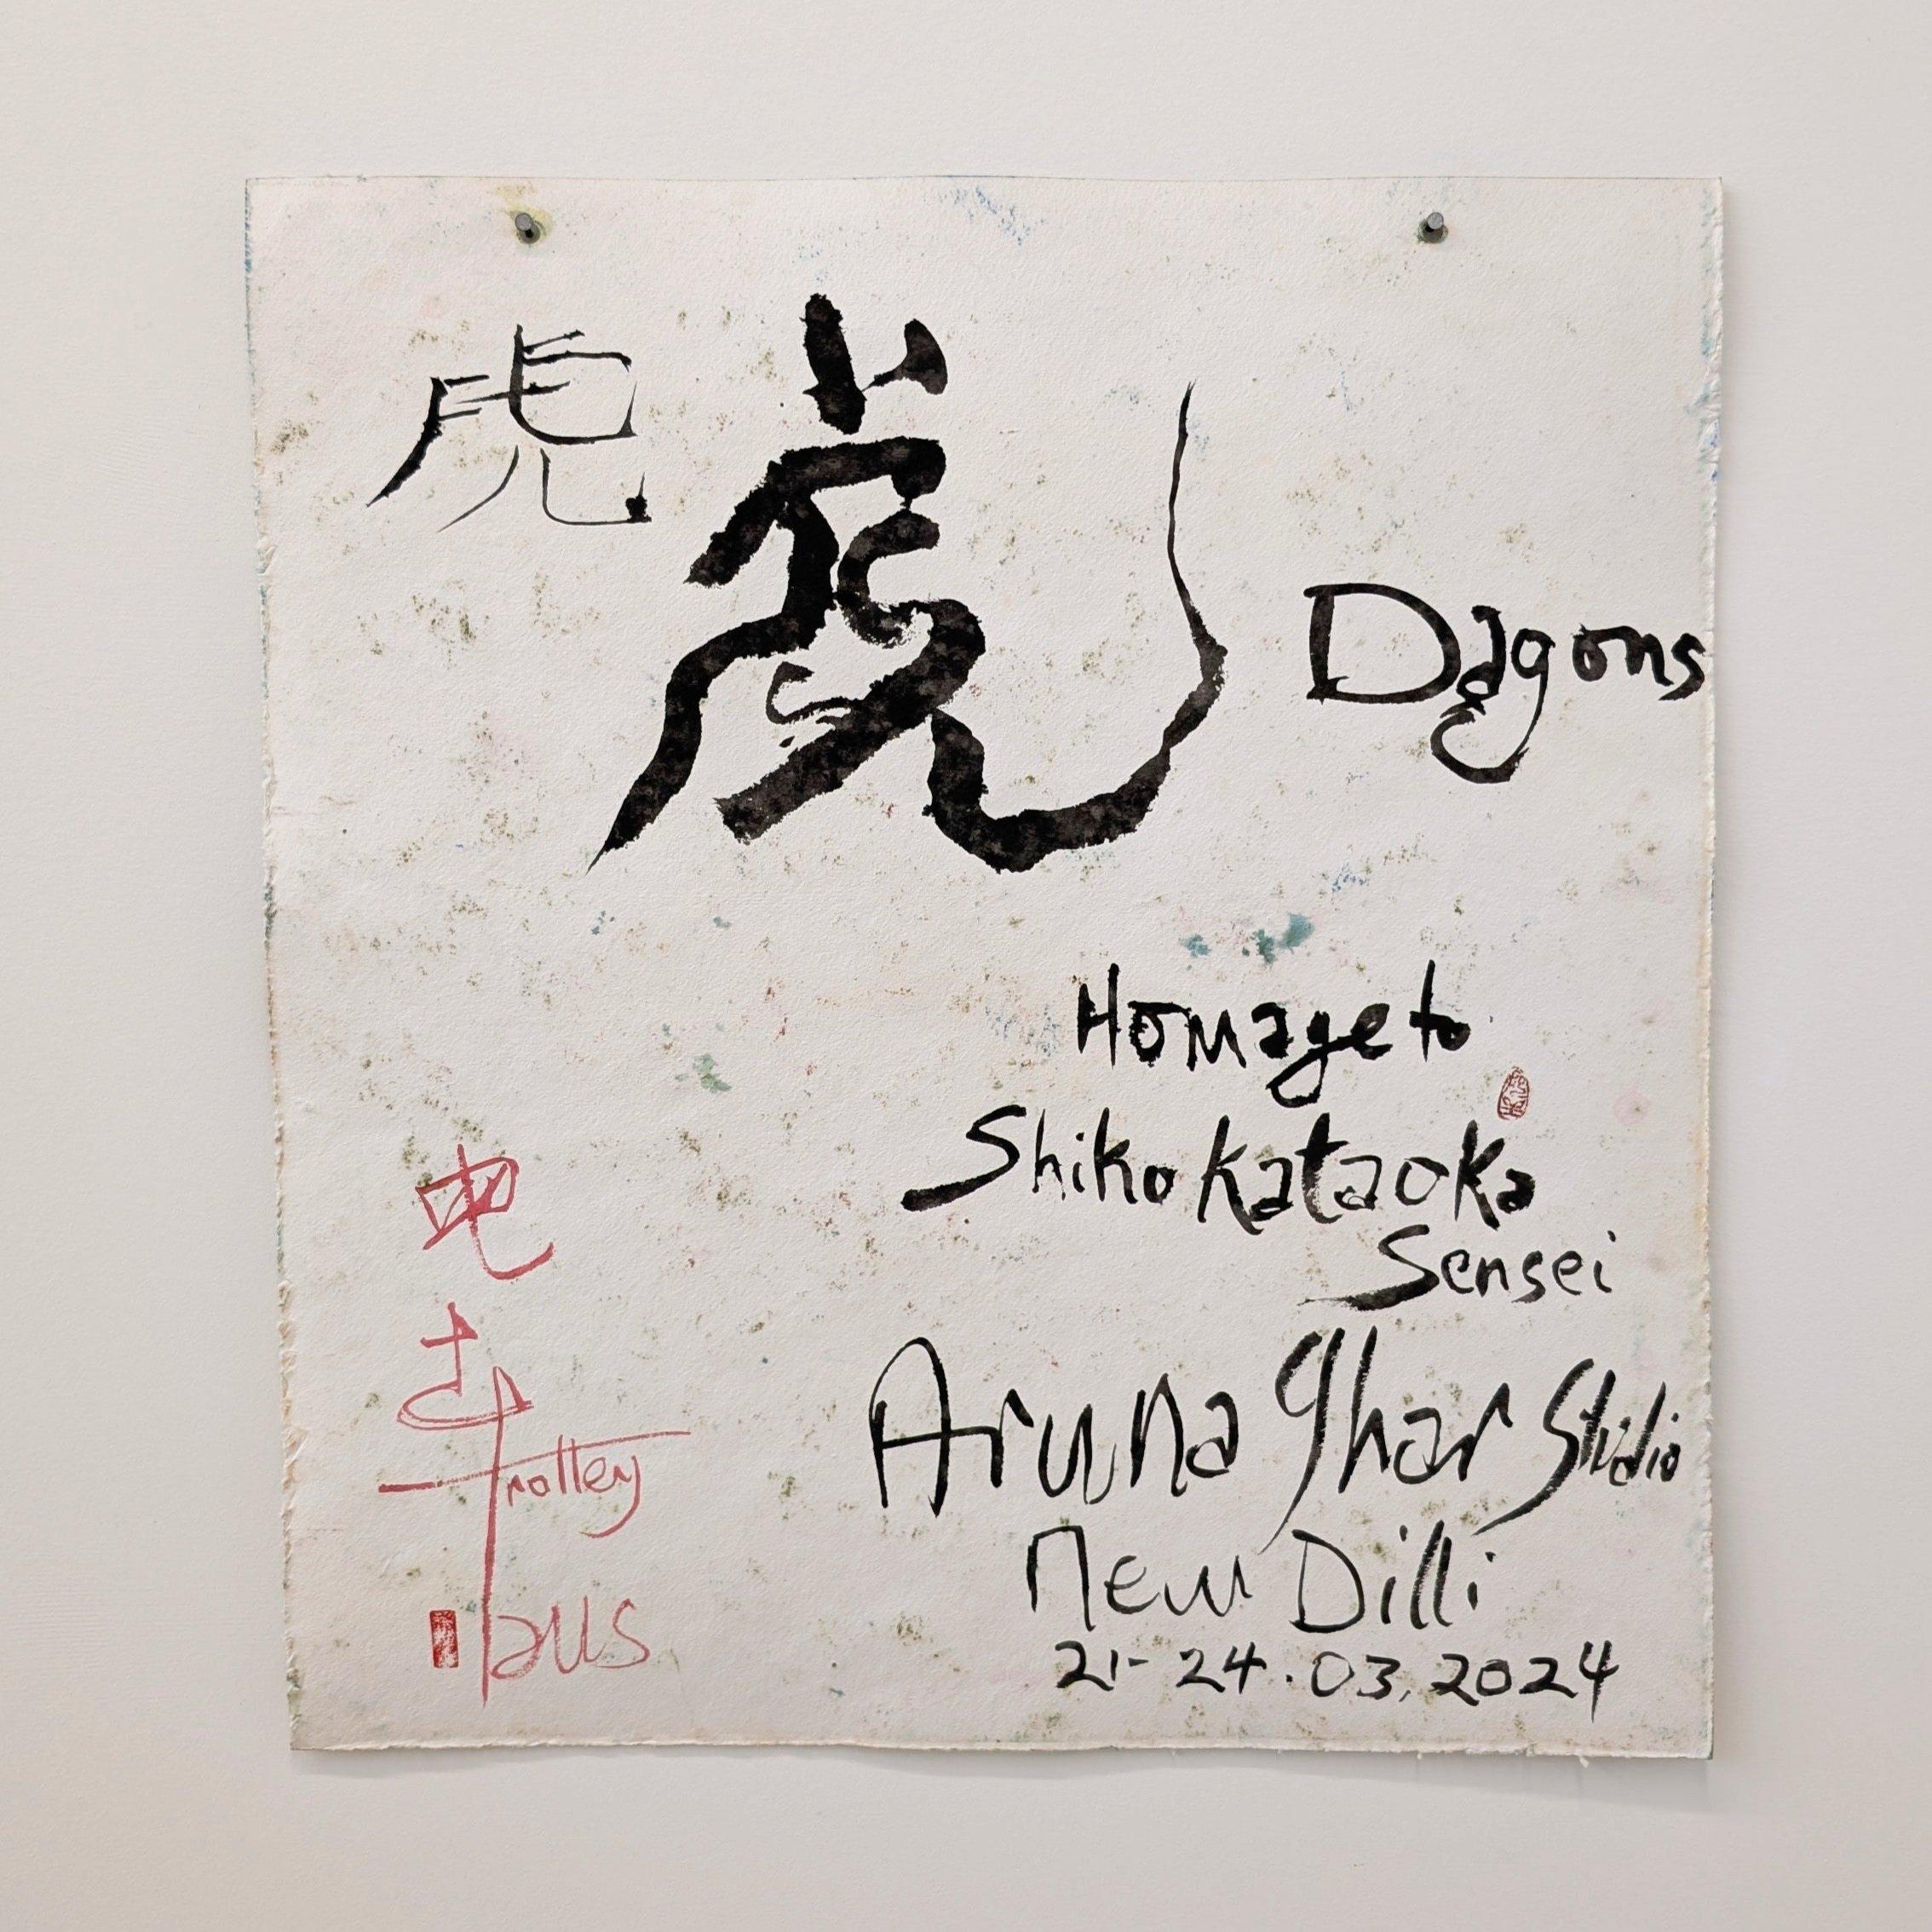 虎
虎
Dagons
Homage to
Shiko Kataoka
Sensei
Aruna Ghar Studio
New Dilli
21-24.03.2024
电车
Trolley
aus